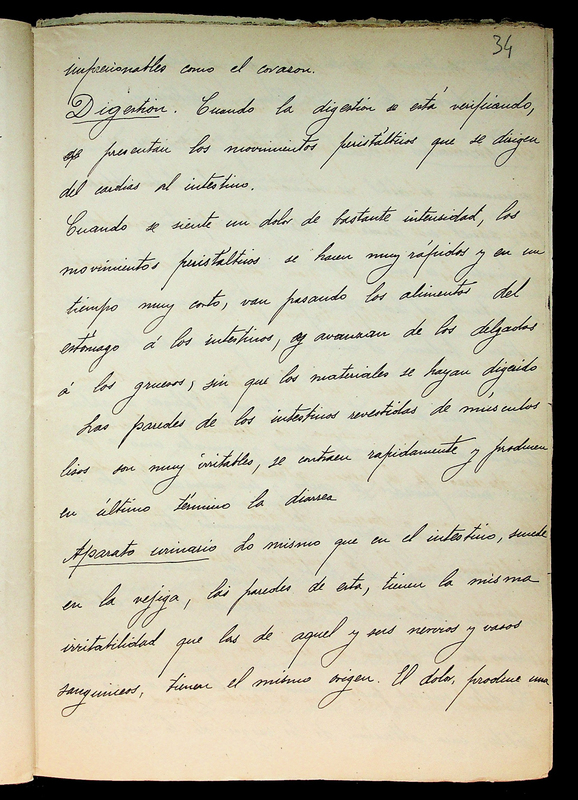 34
impresionables como el corazon.
Digestión. Cuando la digestión se está verificando,
se presentan los movimientos peristáltiios que se dirigen
del cardias al intestino.
Cuando se siente un dolor de bastante intensidad, los
movimientos peristáltiios se hacen muy rápidos y en un
tiempo muy corto, van pasando los alimentos del
estómago á los intestinos, y avanzan de los delgados
á los gruesos, sin que los materiales se hayan digerido
Las paredes de los intestinos revestidas de músculos
lisos son muy irritables, se contraen rapidamente y producen
en último término la diarrea
Aparato urinario Lo mismo que en el intestino, sucede
en la vejiga, las paredes de esta, tienen la misma
irritabilidad que las de aquel y sus nervios y vasos
sanguineos, tienen el mismo origen. El dolor, produce una